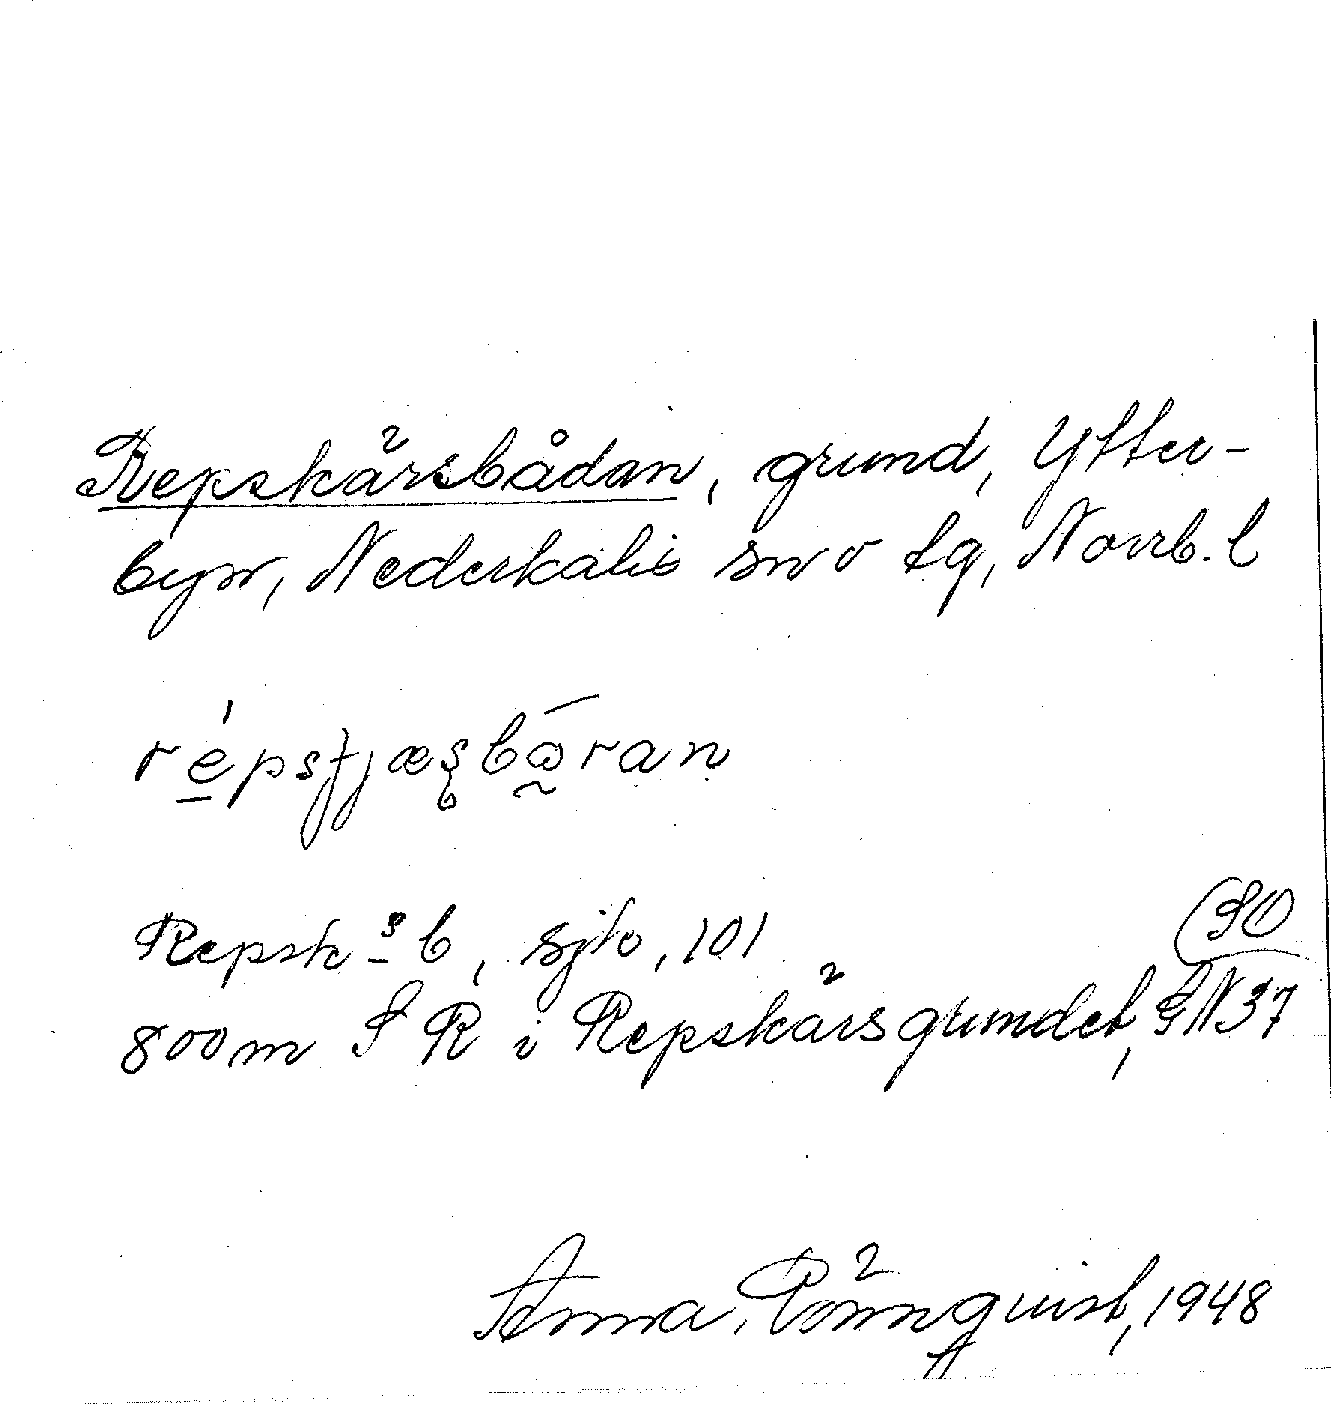 Repskärsbådan, grund, Ytter-
byn, Nederkalix sn o tg, Norrb. l
répsʃjæsbåran
Repsk - b, sjö, 101
(30
800 m S R i Repskärsgrundet, SN37
Anna Rönnquist, 1948